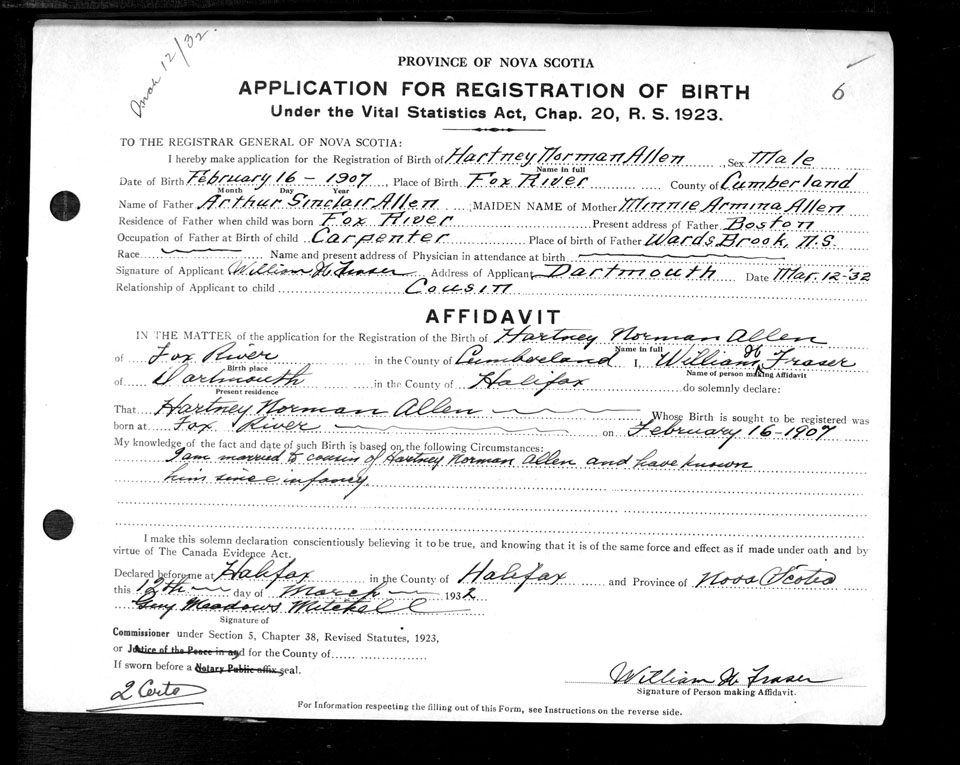 Mch 12/32.
6
PROVINCE OF NOVA SCOTIA
APPLICATION FOR REGISTRATION OF BIRTH
Under the Vital Statistics Act, Chap. 20, R. S. 1923.
TO THE REGISTRAR GENERAL OF NOVA SCOTIA:
I hereby make application for the Registration of Birth of Hartney Norman Allen, Sex Male
Name in full
Date of Birth February 16 - 1907, Place of Birth Fox River County of Cumberland
Month Day Year
Name of Father Arthur Sinclair Allen; MAIDEN NAME of Mother Minnie Armina Allen
Residence of Father when child was born Fox River Present address of Father Boston
Occupation of Father at Birth of child Carpenter Place of birth of Father Wards Brook, N.S.
Race Name and present address of Physician in attendance at birth
Signature of Applicant William H Fraser Address of Applicant Dartmouth Date Mar. 12-'32
Relationship of Applicant to child Cousin
AFFIDAVIT
IN THE MATTER of the application for the Registration of the Birth of Hartney Norman Allen
Name in full
of Fox River in the County of Cumberland I, William H Fraser
Birth place Name of person making Affidavit
of Dartmouth in the County of Halifax do solemnly declare:
Present residence
That Hartney Norman Allen Whose Birth is sought to be registered was
born at Fox River on February 16-1907
My knowledge of the fact and date of such Birth is based on the following Circumstances:
I am married to cousin of Hartney Norman Allen and have known
him since infancy.
I make this solemn declaration conscientiously believing it to be true, and knowing that it is of the same force and effect as if made under oath and by
virtue of The Canada Evidence Act.
Declared before me at Halifax in the County of Halifax and Province of Nova Scotia
this 12th day of March 1932
Meadows Mitchell
Signature of
Commissioner under Section 5, Chapter 38, Revised Statutes, 1923,
or Justice of the Peace in and for the County of
If sworn before a Notary Public affix seal.
William H Fraser
Signature of Person making Affidavit.
2 Certs
For Information respecting the filling out of this Form, see Instructions on the reverse side.